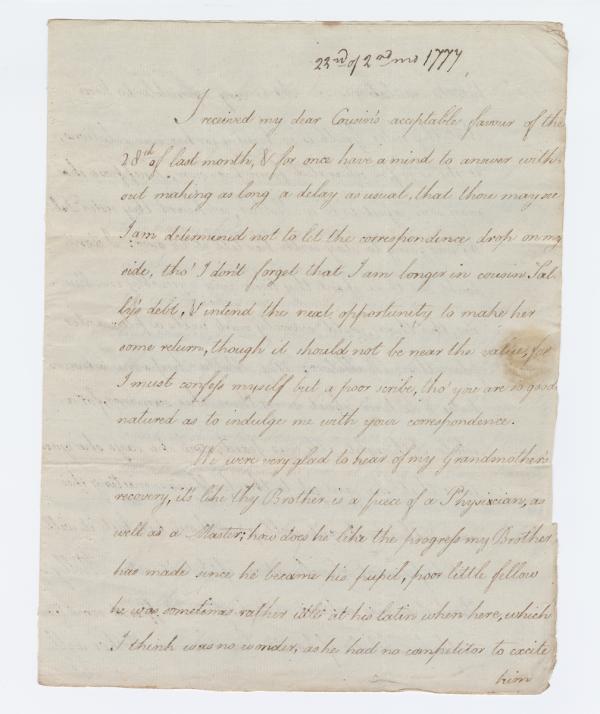 22nd of 2nd mo 1777
I received my dear Cousin's acceptable favour of the
28th of last month, & for once have a mind to answer with-
out making as long a delay as usual, that thou may see
I am determined not to let the correspondence drop on my
side, tho' I don't forget that I am longer in cousin Sal-
ly's debt, & intend the next opportunity to make her
some return, though it should not be near the value, for
I must confess myself but a poor scribe, tho' you are so good
natured as to indulge me with your correspondence.
We were very glad to hear of my Grandmother's
recovery, it's like thy Brother is a piece of a Physician, as
well as a Master; how does he like the progress my Brother
has made since he became his pupil, poor little fellow
he was sometimes rather idle at his latin when here, which
I think was no wonder, as he had no competitor to excite
him